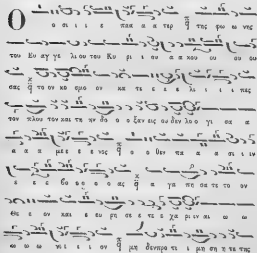 Ο ο σι ι ε πα α α τερ της φω ω νης
του Ευ αγ γε λι ου του Κυ ρι ου α κου ου σα
σας τον κο σμον κα τε ε ε λι ι ι πας
τον πλου τον και τη ην δο ο ο ξαν εις ου δεν λο ο γι σα α
α α α με ε ε νος ο ο θεν πα α α σι ιν
ε ε ε βο ο ο ο ας α α γα πη σα τε το ον
Θε ε ον και ε ευ ρη σε τε ε χα ριν αι ω ω
ω ω ω νι ι ι ον μη δεν προ τι ι μη ση η τε της